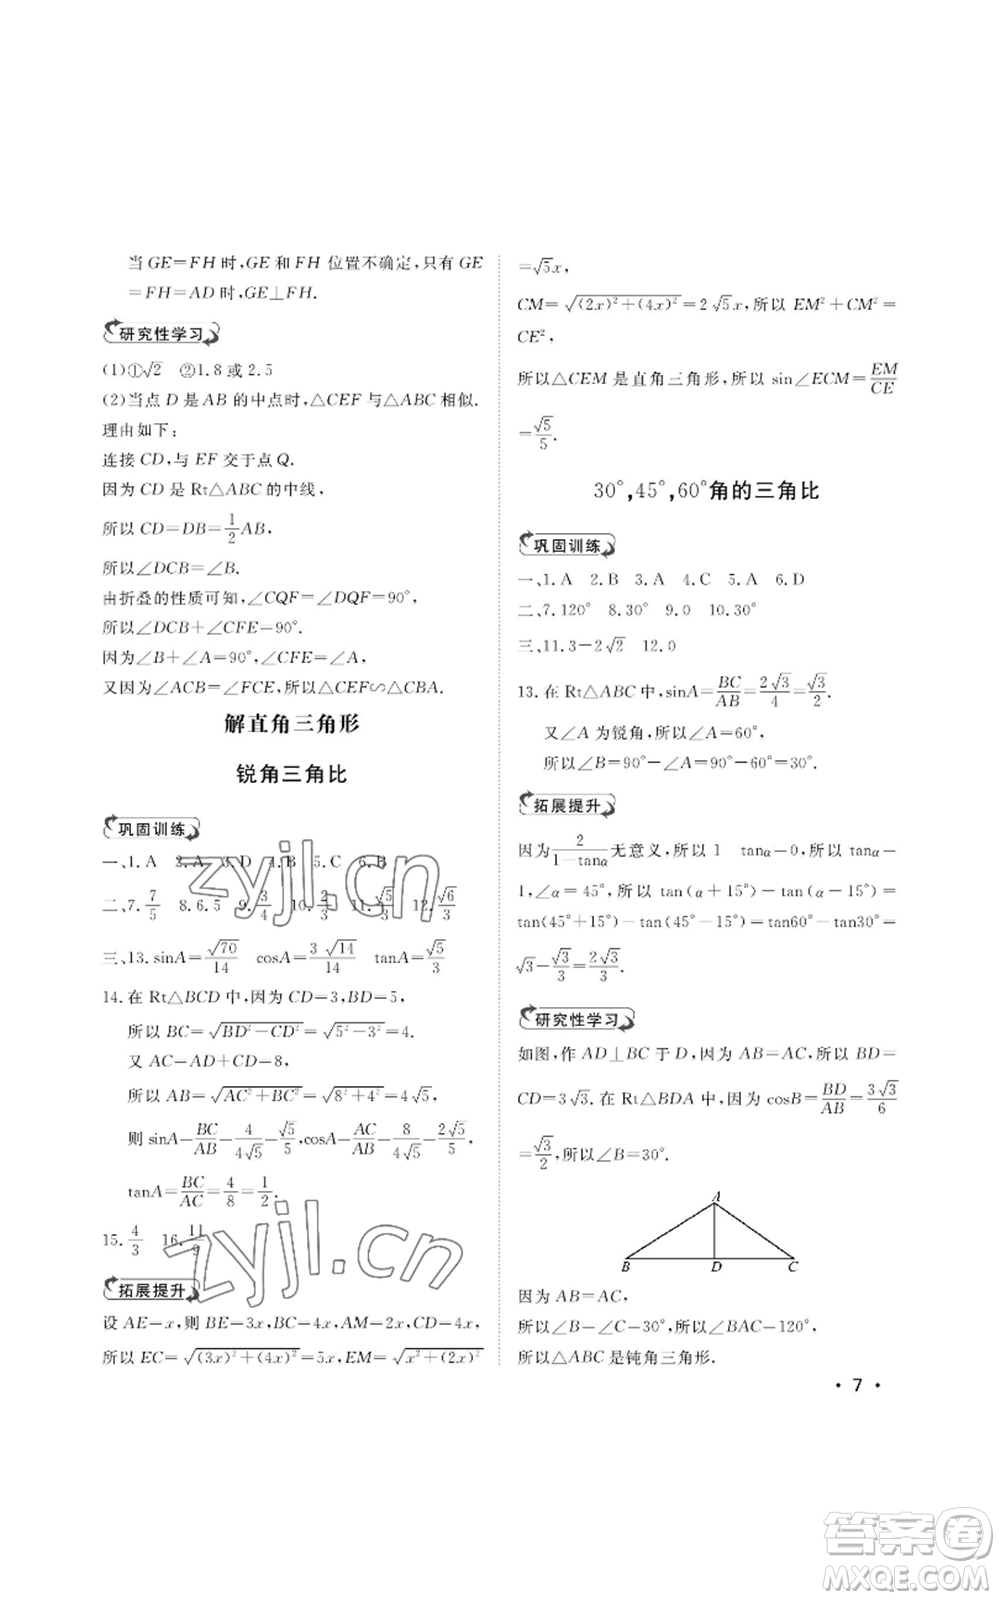 当GE=FH时,GE和FH位置不确定,只有GE
=FH=AD时,GE⊥FH.
研究性学习
(1)①√2 ②1.8或2.5
(2)当点D是AB的中点时,△CEF与△ABC相似.
理由如下:
连接CD,与EF交于点Q.
因为CD是Rt△ABC的中线,
所以CD=DB=1/2AB,
所以∠DCB=∠B.
由折叠的性质可知,∠CQF=∠DQF=90°,
所以∠DCB+∠CFE=90°.
因为∠B+∠A=90°,∠CFE=∠A,
又因为∠ACB=∠FCE,所以△CEF∽△CBA.
解直角三角形
锐角三角比
巩固训练
一、1.A 2.A 3.D 4.B 5.C 6.B
二、7.7/5 8.6.5 9.3/4 10.2/3 11.√5/3 12.√6/3
三、13.sinA=√70/14 cosA=3√14/14 tanA=√5/3
14.在Rt△BCD中,因为CD=3,BD=5,
所以BC=√(BD²-CD²)=√(5²-3²)=4.
又AC=AD+CD=8,
所以AB=√(AC²+BC²)=√(8²+4²)=4√5,
则sinA=BC/AB=4/4√5=√5/5,cosA=AC/AB=8/4√5=2√5/5,
tanA=BC/AC=4/8=1/2.
15.4/3 16.11/9
拓展提升
设AE=x,则BE=3x,BC=4x,AM=2x,CD=4x,
所以EC=√((3x)²+(4x)²)=5x,EM=√(x²+(2x)²)
=√5x,
CM=√((2x)²+(4x)²)=2√5x,所以EM²+CM²=
CE²,
所以△CEM是直角三角形,所以sin∠ECM=EM/CE
=√5/5.
30°,45°,60°角的三角比
巩固训练
一、1.A 2.B 3.A 4.C 5.A 6.D
二、7.120° 8.30° 9.0 10.30°
三、11.3-2√2 12.0
13.在Rt△ABC中,sinA=BC/AB=2√3/4=√3/2.
又∠A为锐角,所以∠A=60°,
所以∠B=90°-∠A=90°-60°=30°.
拓展提升
因为2/(1-tanα)无意义,所以1 tanα=0,所以tanα=
1,∠α=45°,所以tan(α+15°)-tan(α-15°)=
tan(45°+15°)-tan(45°-15°)=tan60°-tan30°=
√3-√3/3=2√3/3.
研究性学习
如图,作AD⊥BC于D,因为AB=AC,所以BD=
CD=3√3.在Rt△BDA中,cosB=BD/AB=3√3/6
=√3/2,所以∠B=30°.
A
B D C
因为AB=AC,
所以∠B=∠C=30°,所以∠BAC=120°,
所以△ABC是钝角三角形.
• 7 •
zyjl.cn
zyjl.cn
答案卷
MXQE.COM